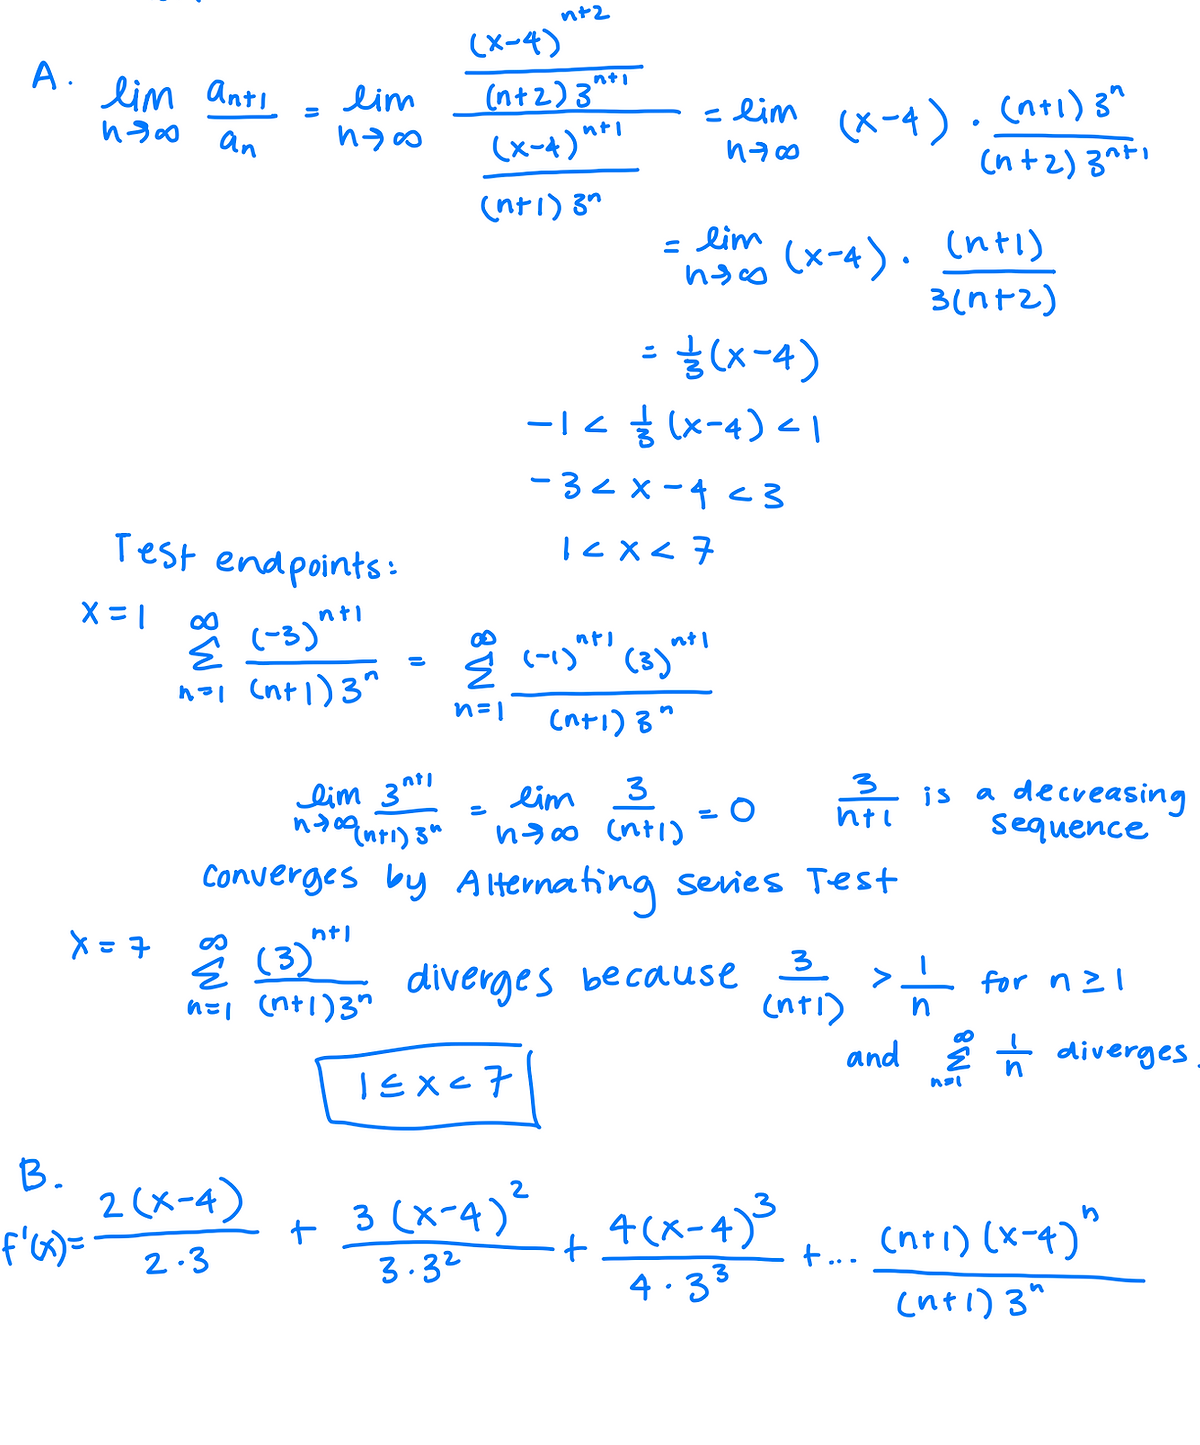 A. lim n→∞ aₙ₊₁/aₙ = lim n→∞ ((x-4)^(n+2)/((n+2)3^(n+1)))/((x-4)^(n+1)/((n+1)3^n)) = lim n→∞ (x-4) · (n+1)3^n/((n+2)3^(n+1))
= lim n→∞ (x-4) · (n+1)/(3(n+2))
= 1/3(x-4)
-1 < 1/3(x-4) < 1
-3 < x-4 < 3
1 < x < 7
Test endpoints:
x=1 ∑ n=1 ∞ (-3)^(n+1)/((n+1)3^n) = ∑ n=1 ∞ (-1)^(n+1)(3)^(n+1)/((n+1)3^n)
lim n→∞ 3^(n+1)/((n+1)3^n) = lim n→∞ 3/(n+1) = 0 3/(n+1) is a decreasing
sequence
converges by Alternating Series Test
x=7 ∑ n=1 ∞ (3)^(n+1)/((n+1)3^n) diverges because 3/(n+1) > 1/n for n≥1
and ∑ n=1 ∞ 1/n diverges.
1 ≤ x < 7
B.
f'(x)= 2(x-4)/(2·3) + 3(x-4)^2/(3·3^2) + 4(x-4)^3/(4·3^3) +... (n+1)(x-4)^n/((n+1)3^n)